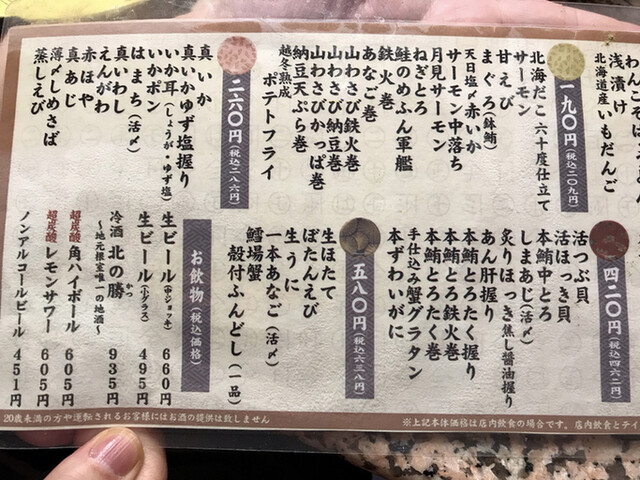 浅漬け
北海道産いもだんご
一九〇円(税込二〇九円)
北海だこ 六十度仕立て
サーモン
甘えび
まぐろ(鉢鮪)
天日塩〆赤いか
サーモン中落ち
月見サーモン
ねぎとろ
鮭のめふん軍艦
鉄火巻
あなご巻
山わさび鉄火巻
山わさび納豆巻
山わさびかっぱ巻
納豆天ぷら巻
越冬熟成ポテトフライ
二六〇円(税込二八六円)
真いか
真いかゆず塩握り
いか耳(しょうが・ゆず塩)
いかポン
はまち(活〆)
真いわし
えんがわ
赤ほや
真あじ
薄〆しめさば
蒸しえび
四二〇円(税込四六二円)
活つぶ貝
活ほっき貝
本鮪中とろ
しまあじ(活〆)
炙りほっき焦し醤油握り
あん肝握り
本鮪とろたく握り
本鮪とろ鉄火巻
本鮪とろたく巻
手仕込み蟹グラタン
本ずわいがに
五八〇円(税込六三八円)
生ほたて
ぼたんえび
生うに
一本あなご(活〆)
鱈場蟹
殻付ふんどし(一品)
お飲物(税込価格)
生ビール(中ジョッキ) 660円
生ビール(小グラス) 495円
冷酒 北の勝(かつ) 935円
~地元根室唯一の地酒~
超炭酸 角ハイボール 605円
超炭酸 レモンサワー 605円
ノンアルコールビール 451円
※上記本体価格は店内飲食の場合です。店内飲食とテイ
20歳未満の方や運転されるお客様にはお酒の提供は致しません